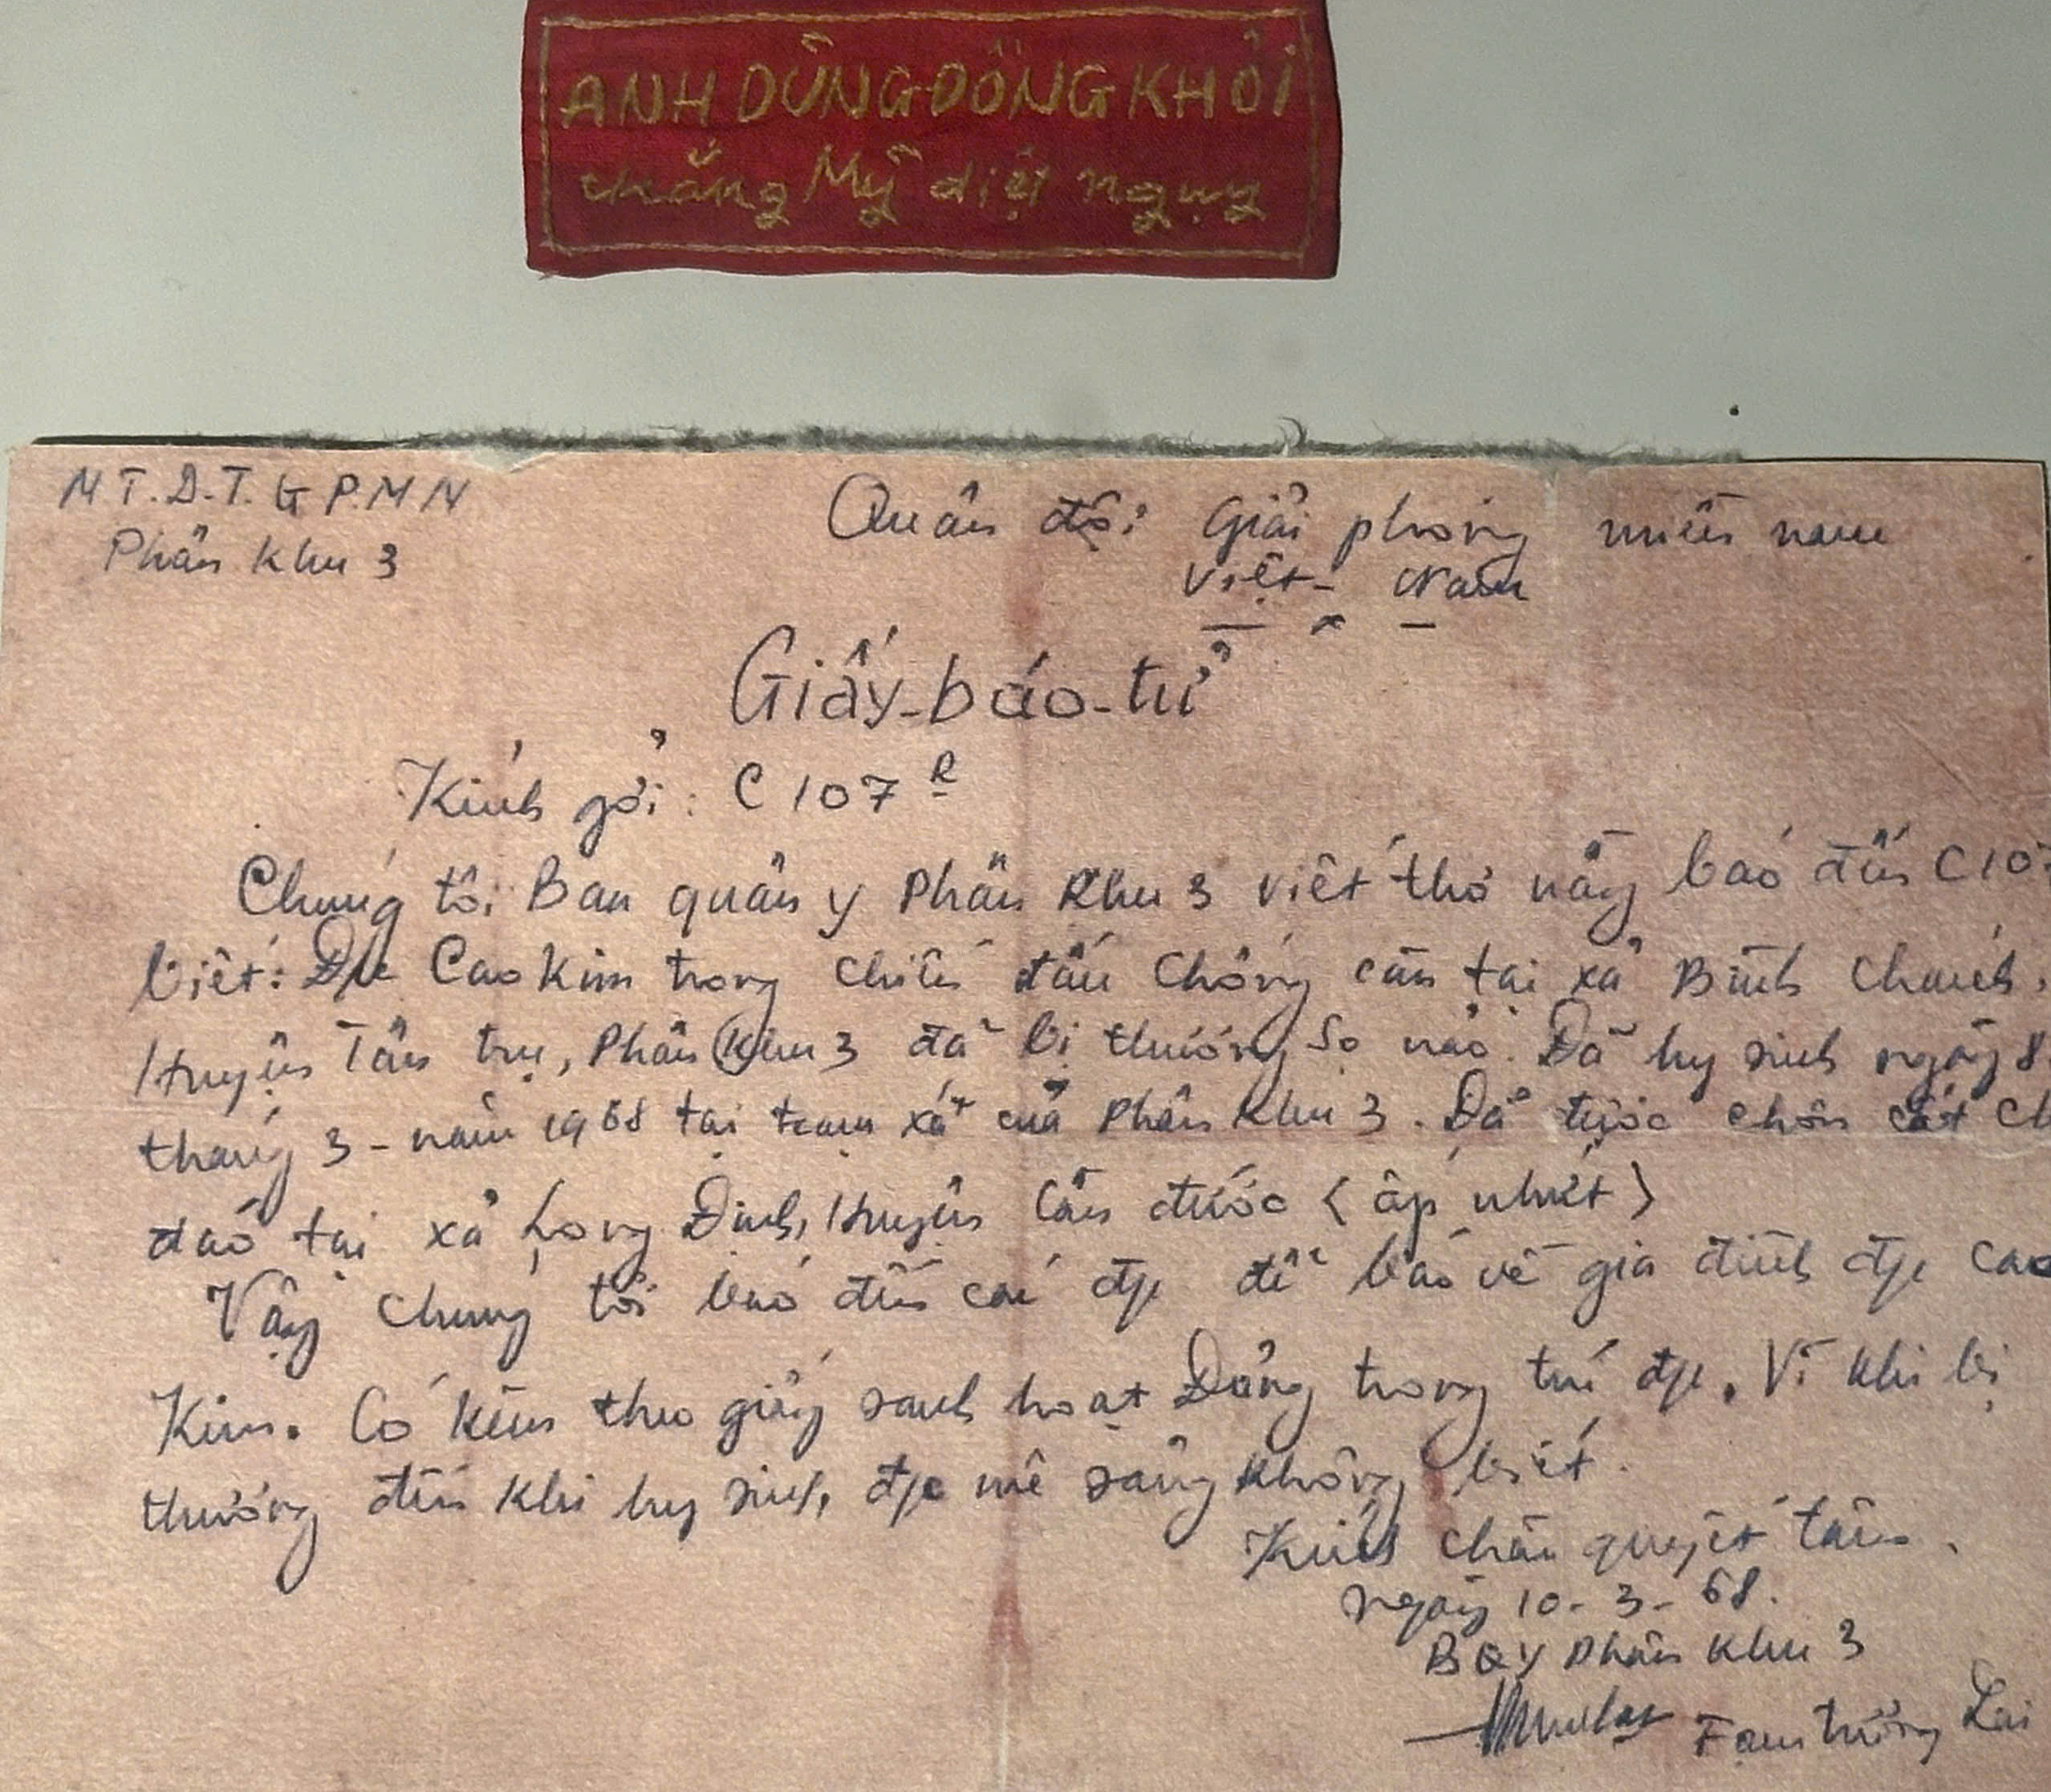 ANH DŨNG ĐỒNG KHỞI
thắng Mỹ diệt ngụy
M T.D.T.G P.M N
Phân Khu 3
Quân đội Giải phóng miền nam
Việt - Nam
Giấy-báo-tử
Kính gởi: C 107 R
Chúng tôi Ban quân y Phân Khu 3 viết thơ nầy báo đến C 107
biết: Đ/c Cao Kim trong chiến đấu chống càn tại xả Bình Chánh,
Huyện Tân trụ, Phân Khu 3 đã bị thương sọ nảo. Đã hy sinh ngày 8
tháng 3 - năm 1968 tại trạm xá của Phân Khu 3. Đã được chôn cất ch
đáo tại xả Long Định, Huyện Cần đước (ấp nhứt)
Vậy chúng tôi báo đến các đ/c để báo về gia đình đ/c Cao
Kim. Có kèm theo giấy sanh hoạt Đảng trong túi đ/c. Vì khi bị
thương đến khi hy sinh, đ/c mê sảng không biết.
Kính chào quyết tâm.
ngày 10 - 3 - 68.
B Q Y Phân Khu 3
Fam tường Lai